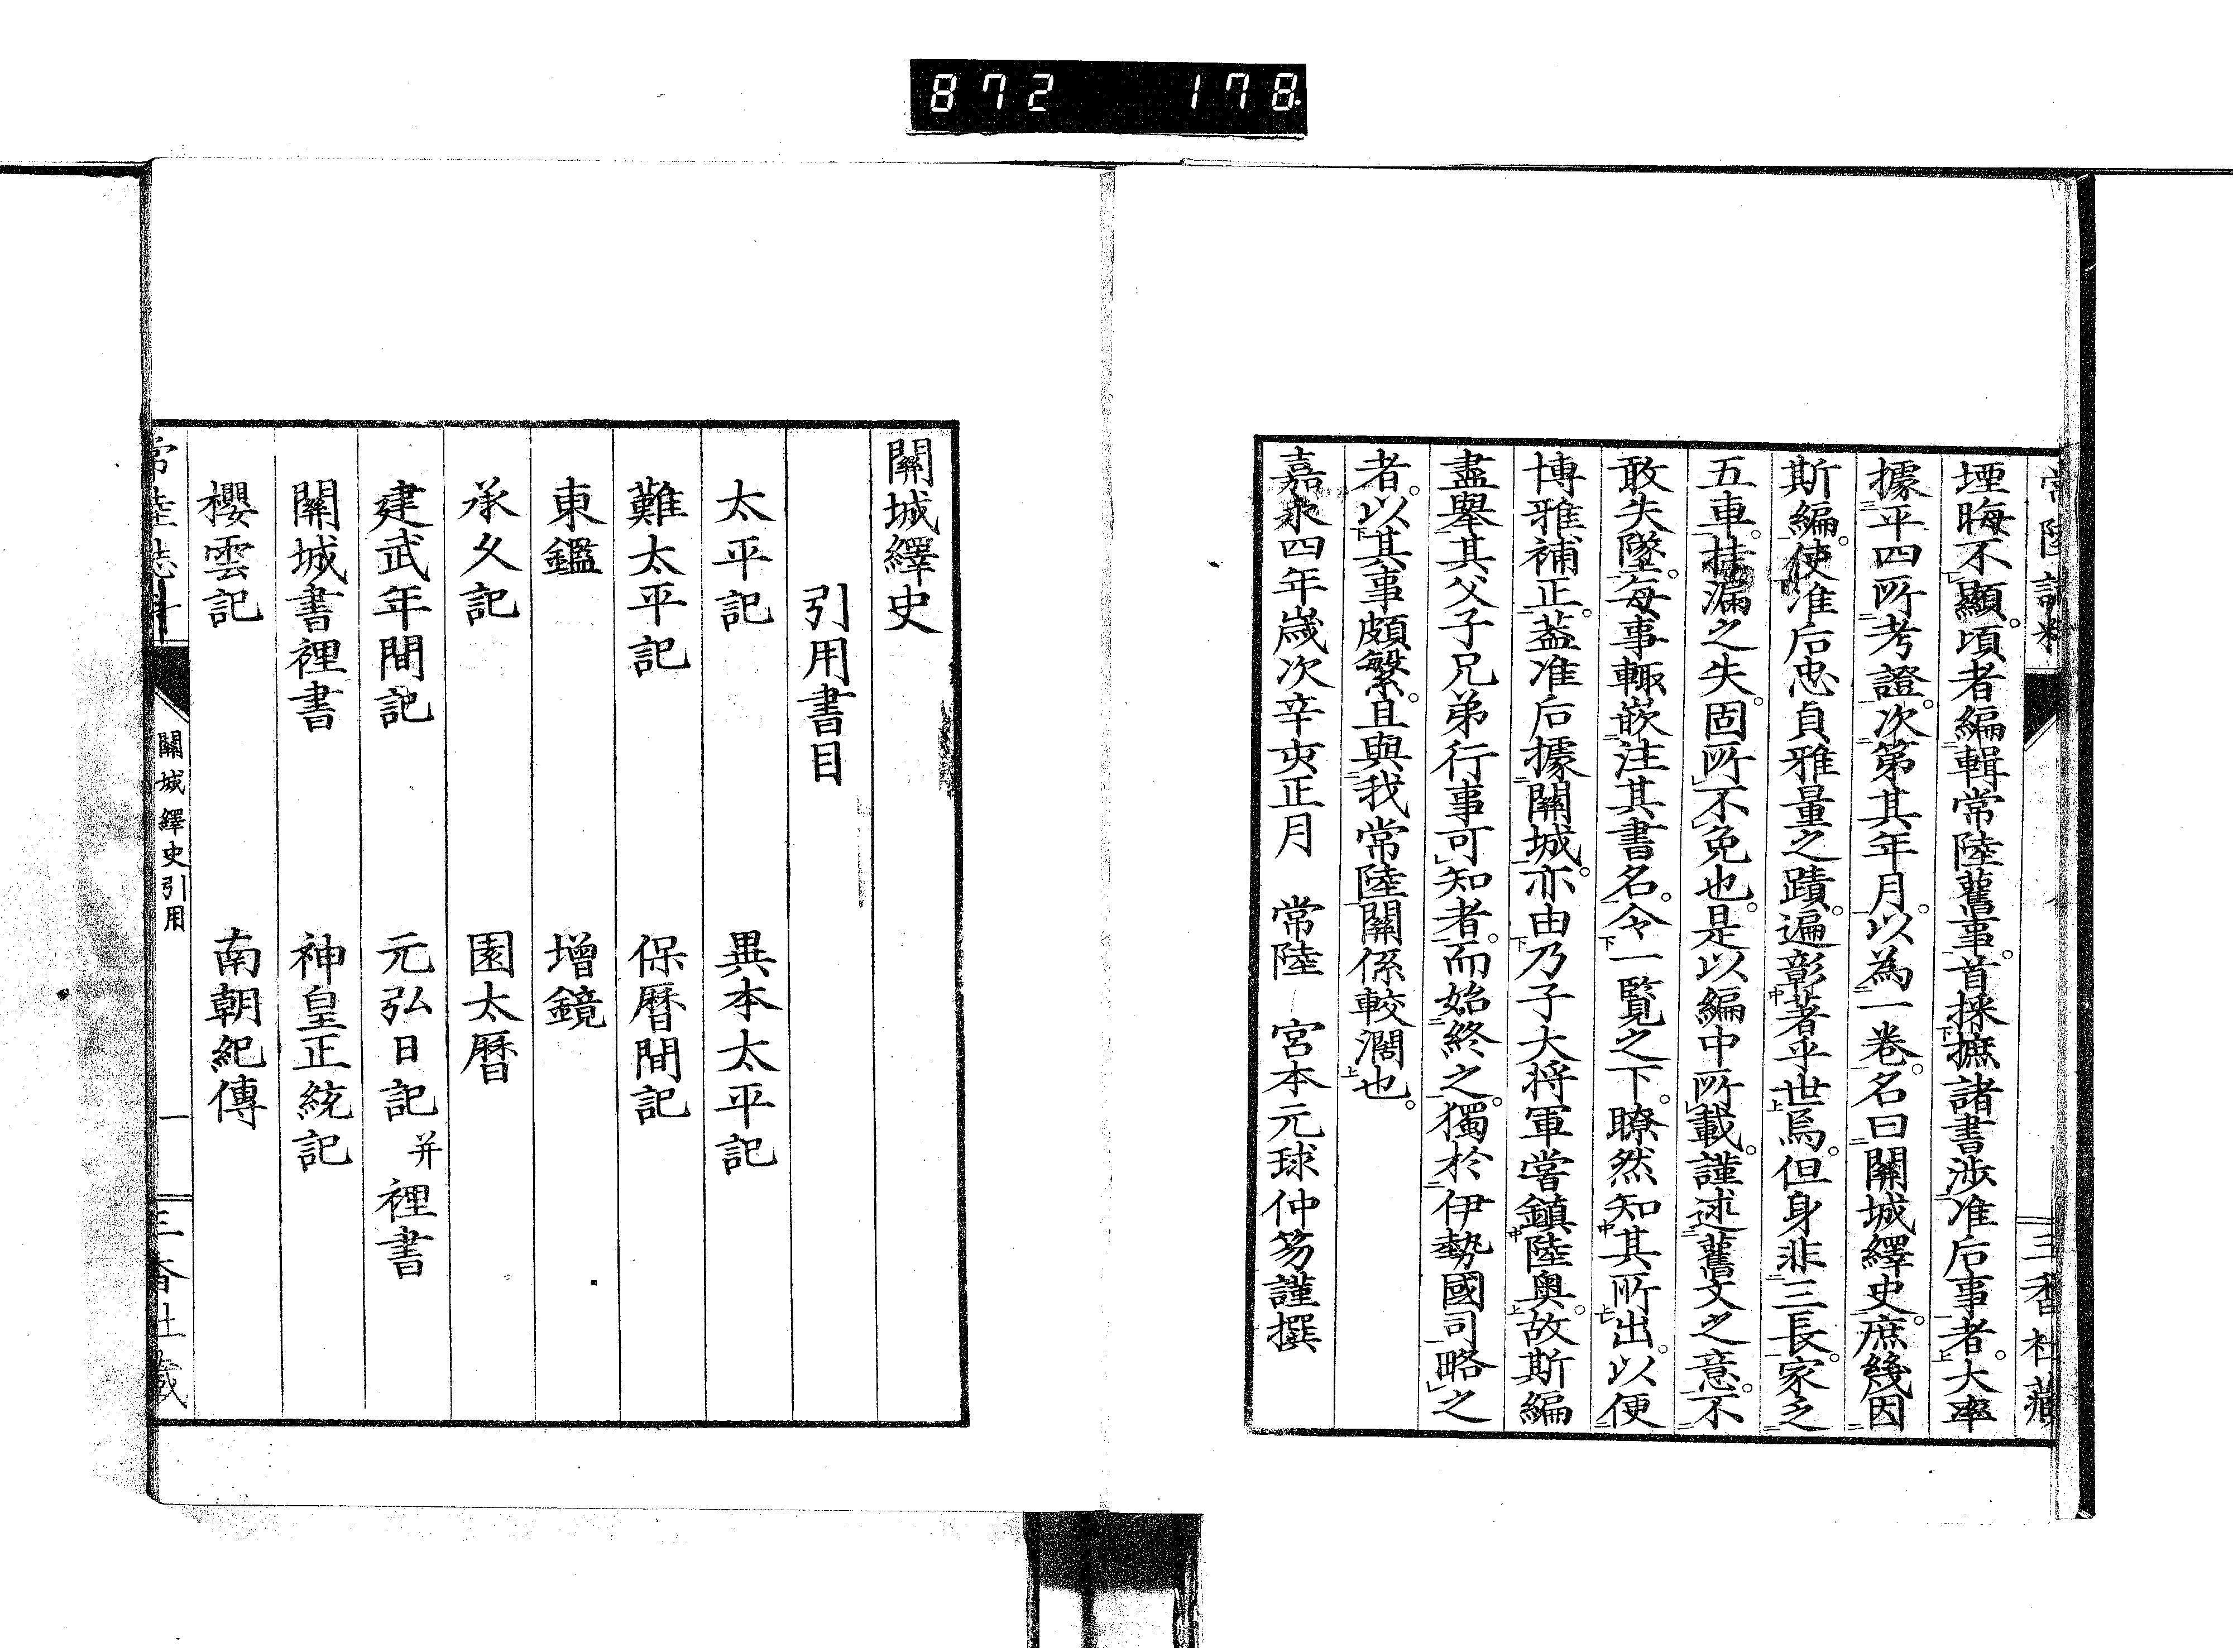 872 178
常陸誌料 三香社藏
堙晦不顯。頃者編輯常陸舊事。首採摭諸書涉准后事者。大率
據平四所考證。次第其年月。以為一卷。名曰關城繹史。庶幾因
斯編。使准后忠貞雅量之蹟。遍彰著乎世焉。但身非三長。家乏
五車。挂漏之失。固所不免也。是以編中所載。謹述舊文之意。不
敢失墜。每事輙嵌注其書名。令一覧之下。瞭然知其所出。以便
博雅補正。蓋准后據關城。亦由乃子大将軍嘗鎮陸奥。故斯編
盡舉其父子兄弟行事可知者。而始終之。獨於伊勢國司略之
者。以其事頗繁。且與我常陸關係較濶也。
嘉永四年歳次辛亥正月 常陸 宮本元球仲笏謹撰
關城繹史
引用書目
太平記 異本太平記
難太平記 保暦間記
東鑑 增鏡
承久記 園太暦
建武年間記 元弘日記并裡書
關城書裡書 神皇正統記
櫻雲記 南朝紀傳
常陸誌料 關城繹史引用 一 三香社藏